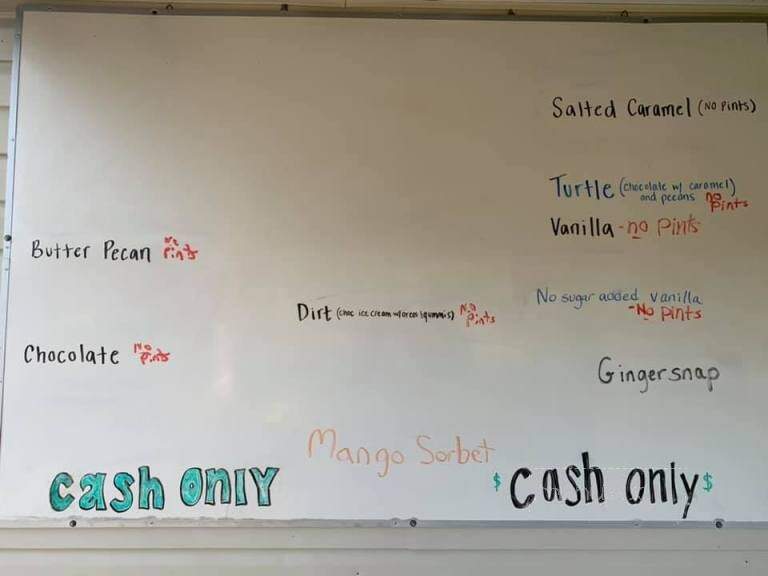 Salted Caramel (No Pints)
Turtle (chocolate w/ caramel)
and pecans no
Pints
Vanilla - no Pints
Butter Pecan No
Pints
No sugar added vanilla
- No Pints
Dirt (choc ice cream w/oreos/gummis) No
Pints
Chocolate No
Pints
Gingersnap
Mango Sorbet
Cash Only
$ Cash only $